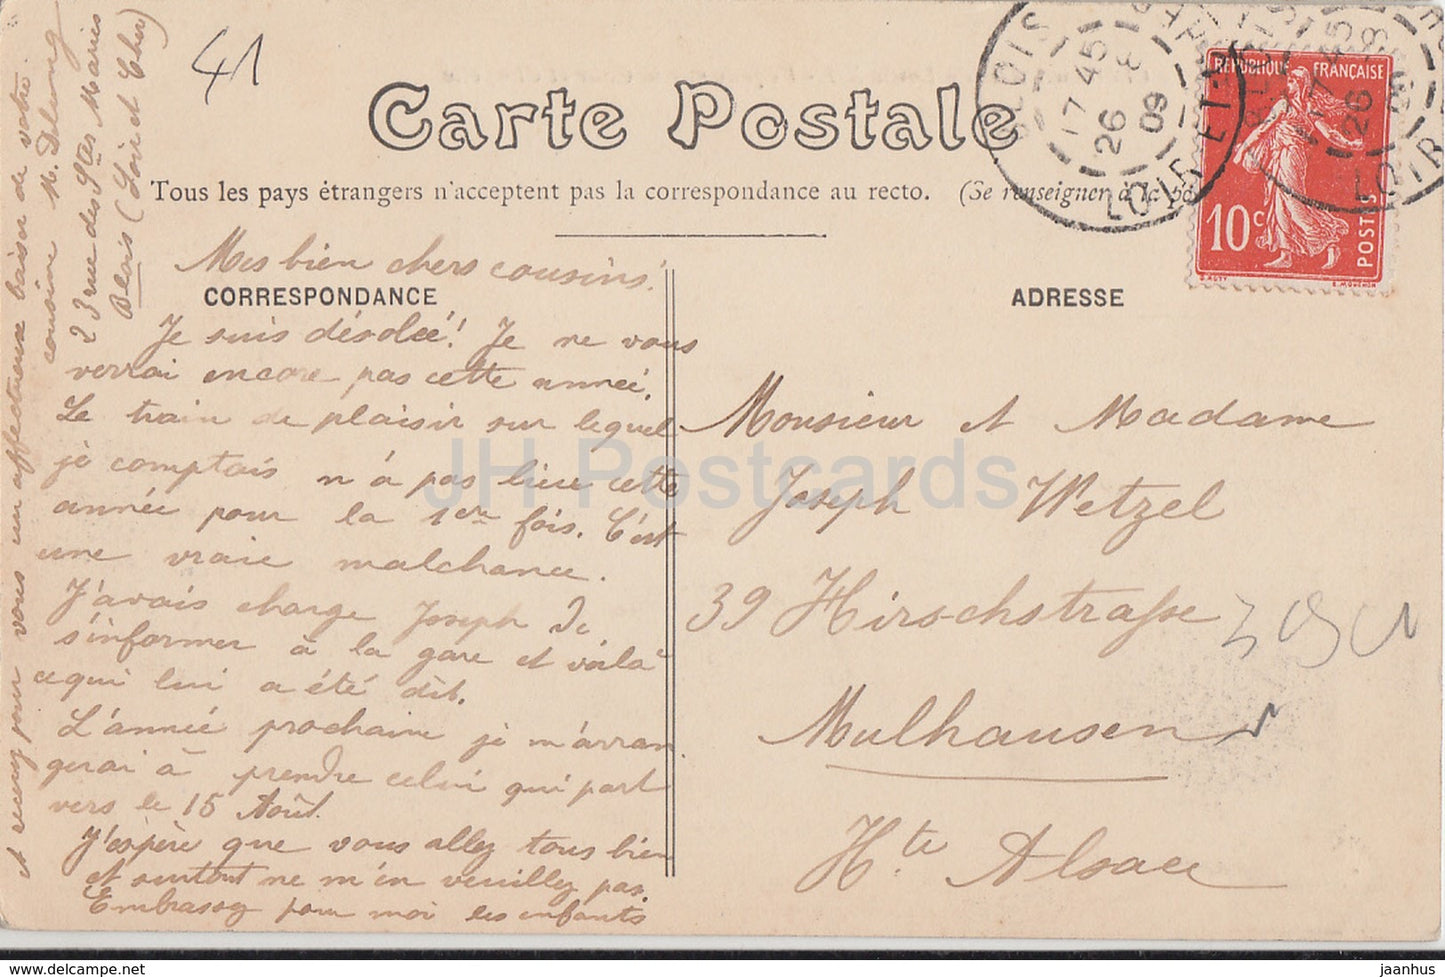 41
Carte Postale
Tous les pays étrangers n'acceptent pas la correspondance au recto. (Se renseigner à la po
BLOIS
17 45
26 8
09
LOIR ET
RÉPUBLIQUE FRANÇAISE
10c
POSTES
CORRESPONDANCE
ADRESSE
Mes bien chers cousins!
Je suis désolée! Je ne vous
verrai encore pas cette année.
Le train de plaisir sur lequel
je comptais n'à pas lieu cette
année pour la 1er fois. C'est
une vraie malchance.
J'avais charge Joseph De
s'informer à la gare et voilà
ce qui lui a été dit.
L'année prochaine je m'arran
gerai à prendre celui qui part
vers le 15 Août.
J'espère que vous allez tous bien
et surtout ne m'en veuillez pas.
Embrassez pour moi les enfants
et recevez pour vous un affectueux baiser de votre
cousine M.
23 rue des Stes Maries
Blois (Loir et Cher)
Monsieur et Madame
Joseph Wetzel
39 Hirschstraße
Mulhausen
Hte Alsace
JH Postcards
www.delcampe.net
jaanhus